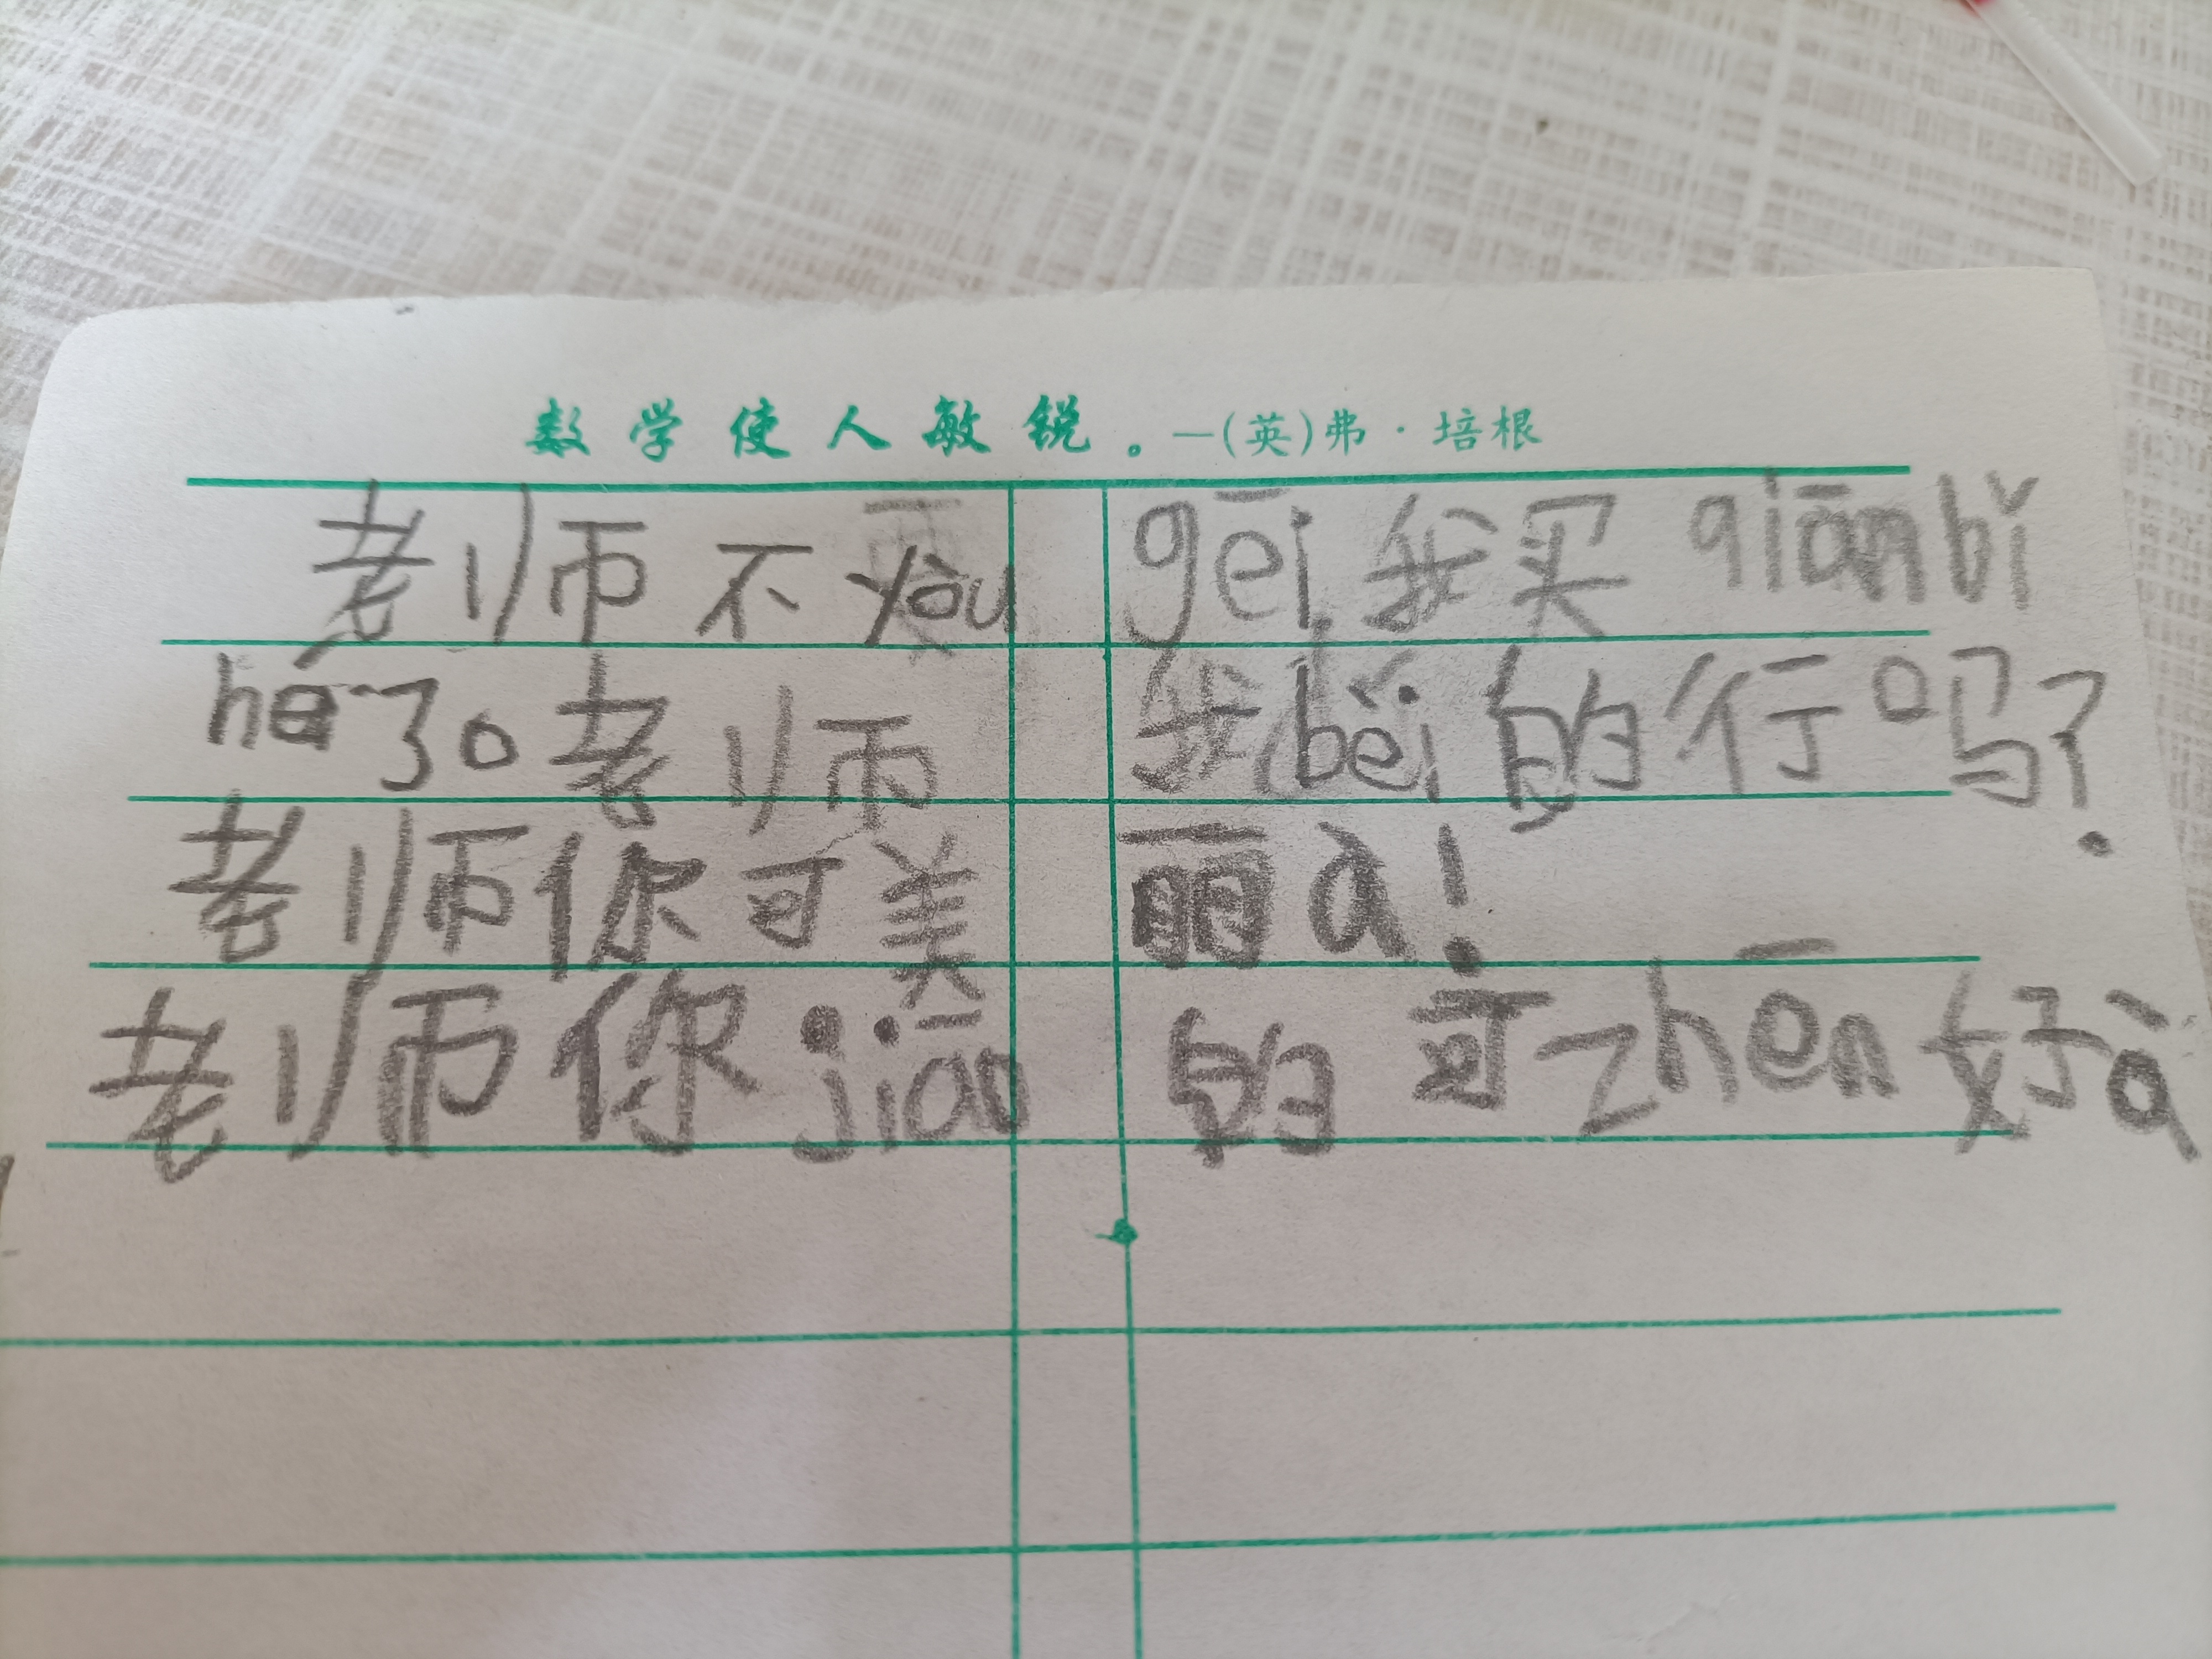 数学使人敏锐。—(英)弗·培根
老师不yòu gēi 我买 qiān bǐ
hǎ了。老师 我 bèi 的行吗?
老师你可美丽à!
老师你 jiāo 的可 zhēn 好à